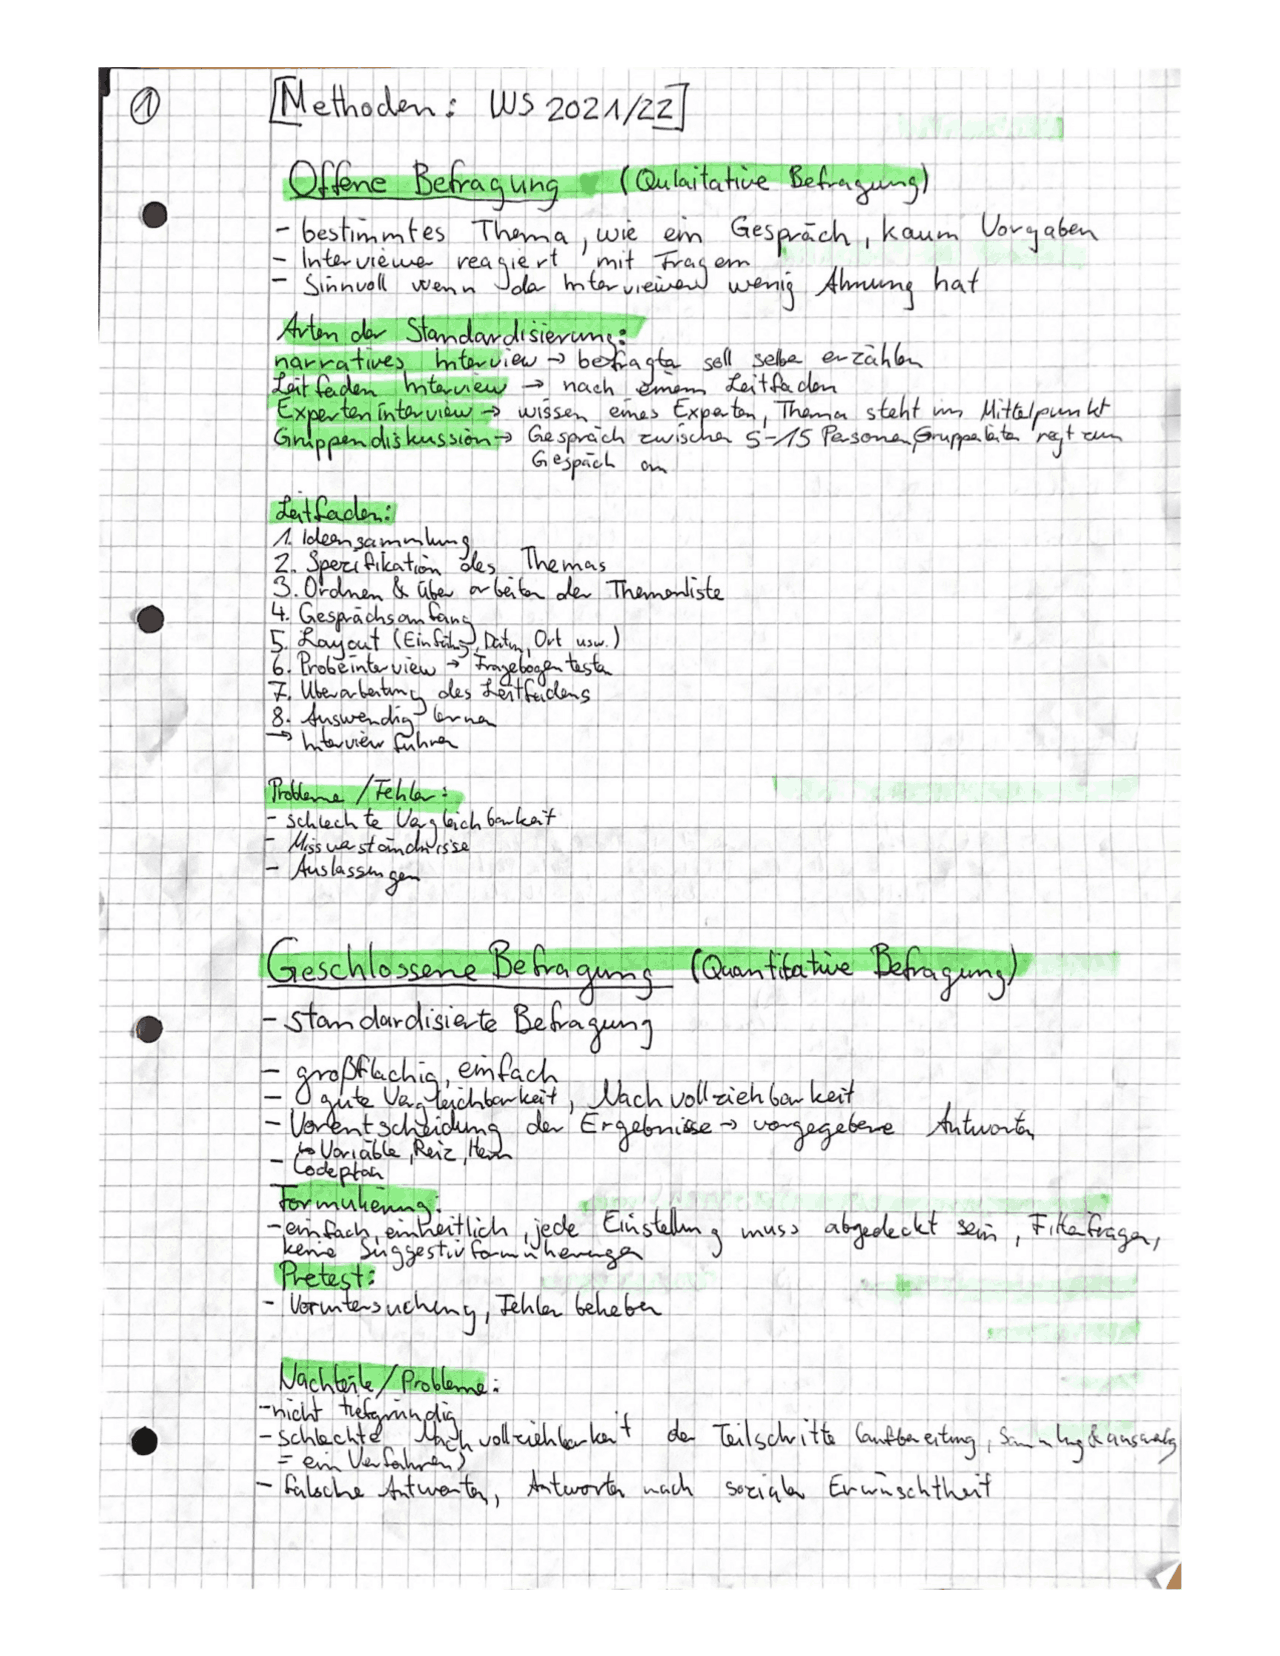 1
[Methoden: WS 2021/22]
Offene Befragung (Qulaitative Befragung)
- bestimmtes Thema, wie ein Gespräch, kaum Vorgaben
- Interviewer reagiert mit Fragem
- Sinnvoll wenn der Interviewer wenig Ahnung hat
Arten der Standardisierung:
narratives Interview → befragte soll selber erzählen
Leitfaden Interview → nach einem Leitfaden
Experteninterview → wissen eines Experten, Thema steht im Mittelpunkt
Gruppendiskussion → Gespräch zwischen 5-15 Personen, Gruppenleiter regt zum
Gespäch an
Leitfaden:
1. Ideensammlung
2. Spezifikation des Themas
3. Ordnen & über arbeiten der Themenliste
4. Gesprächsanfang
5. Layout (Einführg, Datum, Ort usw.)
6. Probeinterview → Fragebogen testen
7. Überarbeitung des Leitfadens
8. Auswendig lernen
→ Interview führen
Probleme / Fehler:
- schlechte Vergleichbarkeit
- Missverständnisse
- Auslassungen
Geschlossene Befragung (Quantitative Befragung)
- standardisierte Befragung
- großflächig, einfach
- gute Vergleichbarkeit, Nachvollziehbarkeit
- Vorentscheidung der Ergebnisse → vorgegebene Antworten
↳ Variable, Reiz, Item
- Codeplan
Formulierung:
- einfach, einheitlich, jede Einstellung muss abgedeckt sein, Filterfragen,
keine Suggestivformulierungen
Pretest:
- Voruntersuchung, Fehler beheben
Nachteile / Probleme:
- nicht tiefgründig
- schlechte Nachvollziehbarkeit der Teilschritte (aufbereitung, Sammlung & auswertg
= ein Verfahren)
- falsche Antworten, Antworten nach sozialer Erwünschtheit